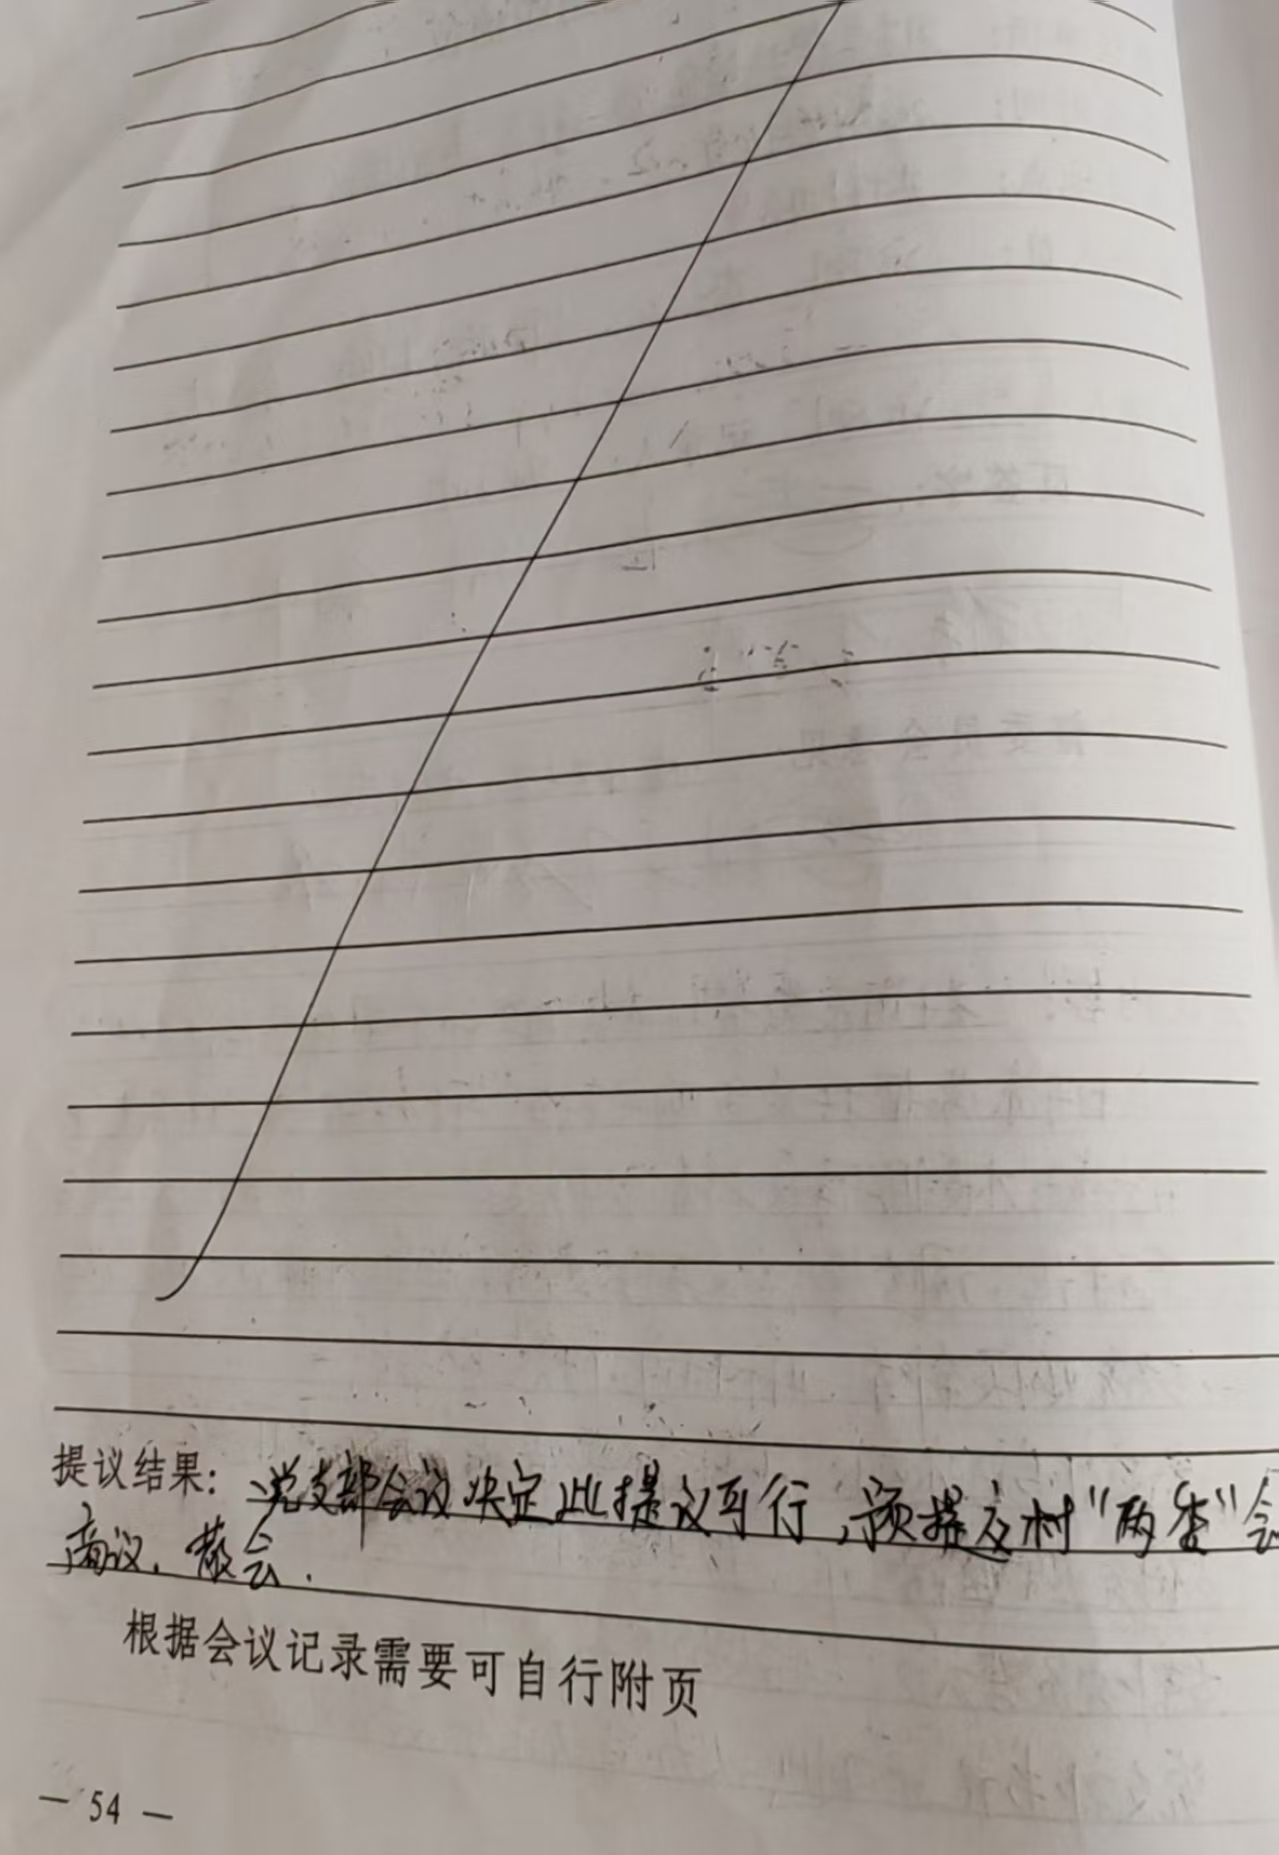 提议结果：党支部会议决定此提议可行，预提交村“两委”会
商议，散会.
根据会议记录需要可自行附页
— 54 —